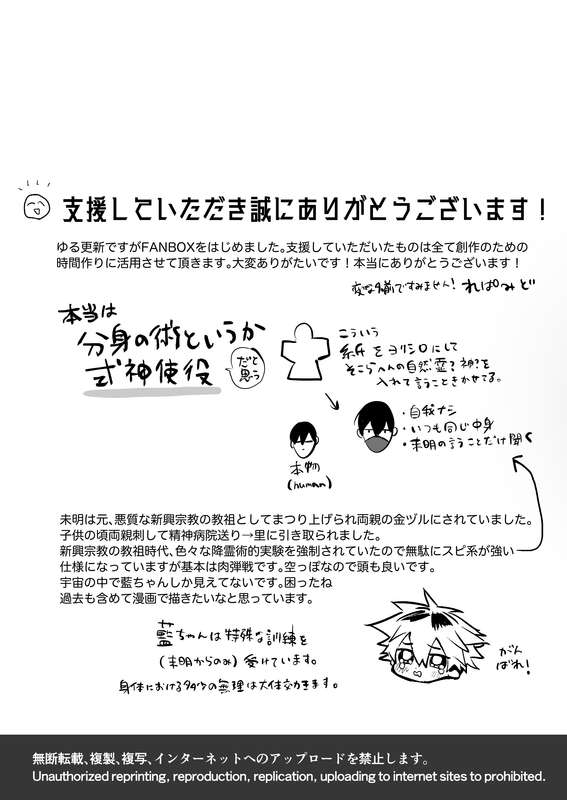 支援していただき誠にありがとうございます!
ゆる更新ですがFANBOXをはじめました。支援していただいたものは全て創作のための
時間作りに活用させて頂きます。大変ありがたいです!本当にありがとうございます!
変な名前ですみません! れぱのみど
本当は
分身の術というか
式神使役
だと
思う
こういう
紙を ヨリシロにして
そこらへんの自然霊?神?を
入れて言うこときかせてる。
・自我ナシ
・いつも同じ中身
・未明の言うことだけ聞く
本物
(human)
未明は元、悪質な新興宗教の教祖としてまつり上げられ両親の金ヅルにされていました。
子供の頃両親刺して精神病院送り→里に引き取られました。
新興宗教の教祖時代、色々な降霊術的実験を強制されていたので無駄にスピ系が強い
仕様になっていますが基本は肉弾戦です。空っぽなので頭も良いです。
宇宙の中で藍ちゃんしか見えてないです。困ったね
過去も含めて漫画で描きたいなと思っています。
藍ちゃんは特殊な訓練を
(未明からのみ)受けています。
身体における多少の無理は大体効きます。
がん
ばれ!
無断転載、複製、複写、インターネットへのアップロードを禁止します。
Unauthorized reprinting, reproduction, replication, uploading to internet sites to prohibited.